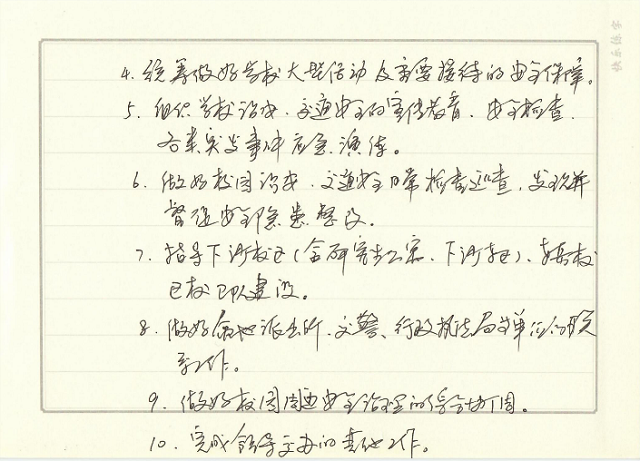 4. 统筹做好学校大型活动及重要接待的安全保障。
5. 组织学校治安、交通安全的宣传教育、安全检查、
各类突发事件应急演练。
6. 做好校园治安、交通安全日常检查巡查，发现并
督促安全隐患整改。
7. 指导下沙校区（含研究生公寓、下沙
校区校卫队建设。
8. 做好属地派出所、交警、行政执法局等单位的联
系工作。
9. 做好校园周边安全治理的综合协调。
10. 完成领导交办的其他工作。